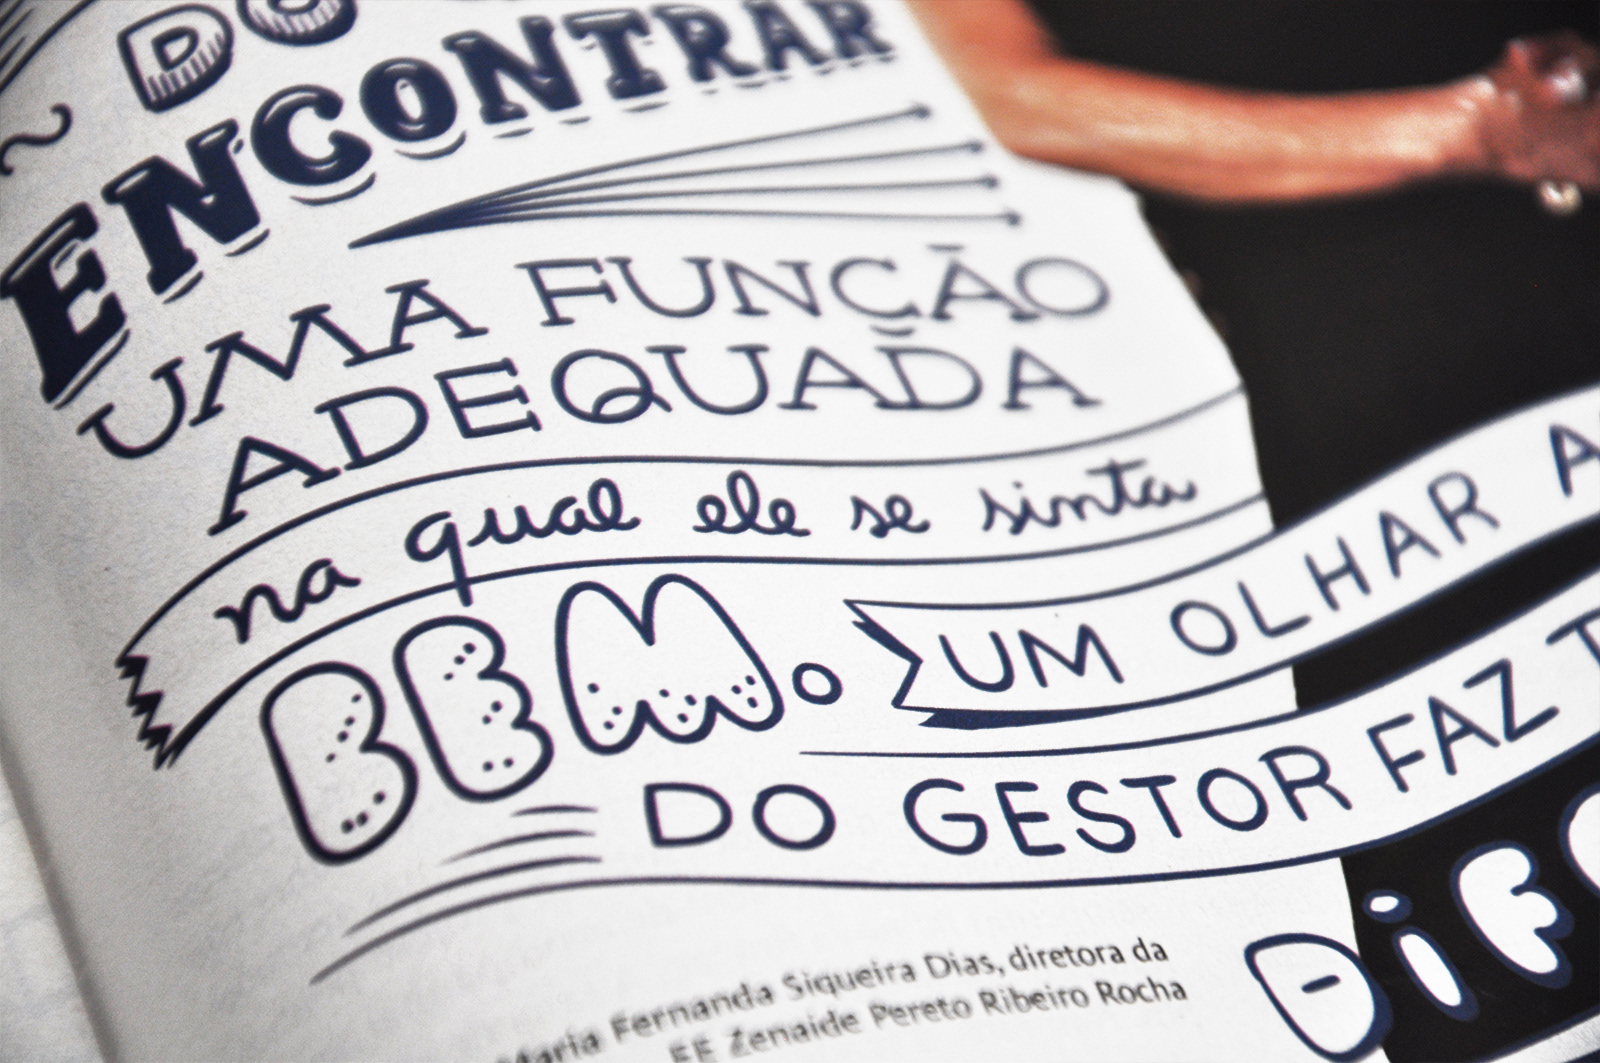 DO
ENCONTRAR
UMA FUNÇÃO
ADEQUADA
na qual ele se sinta
BEM. UM OLHAR
DO GESTOR FAZ
Maria Fernanda Siqueira Dias, diretora da
EE Zenaide Pereto Ribeiro Rocha